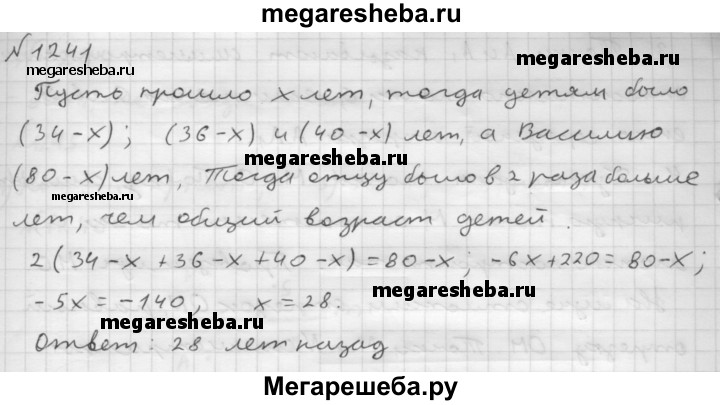 megaresheba.ru
№1241
megaresheba.ru
megaresheba.ru
Пусть прошло x лет, тогда детям было
(34-x); (36-x) и (40-x) лет, а Василию
megaresheba.ru
(80-x) лет, Тогда отцу было в 2 раза больше
megaresheba.ru
лет, чем общий возраст детей.
2(34-x+36-x+40-x)=80-x; -6x+220=80-x;
megaresheba.ru
-5x=-140, x=28.
megaresheba.ru
Ответ: 28 лет назад
megaresheba.ru
Мегарешеба.ру